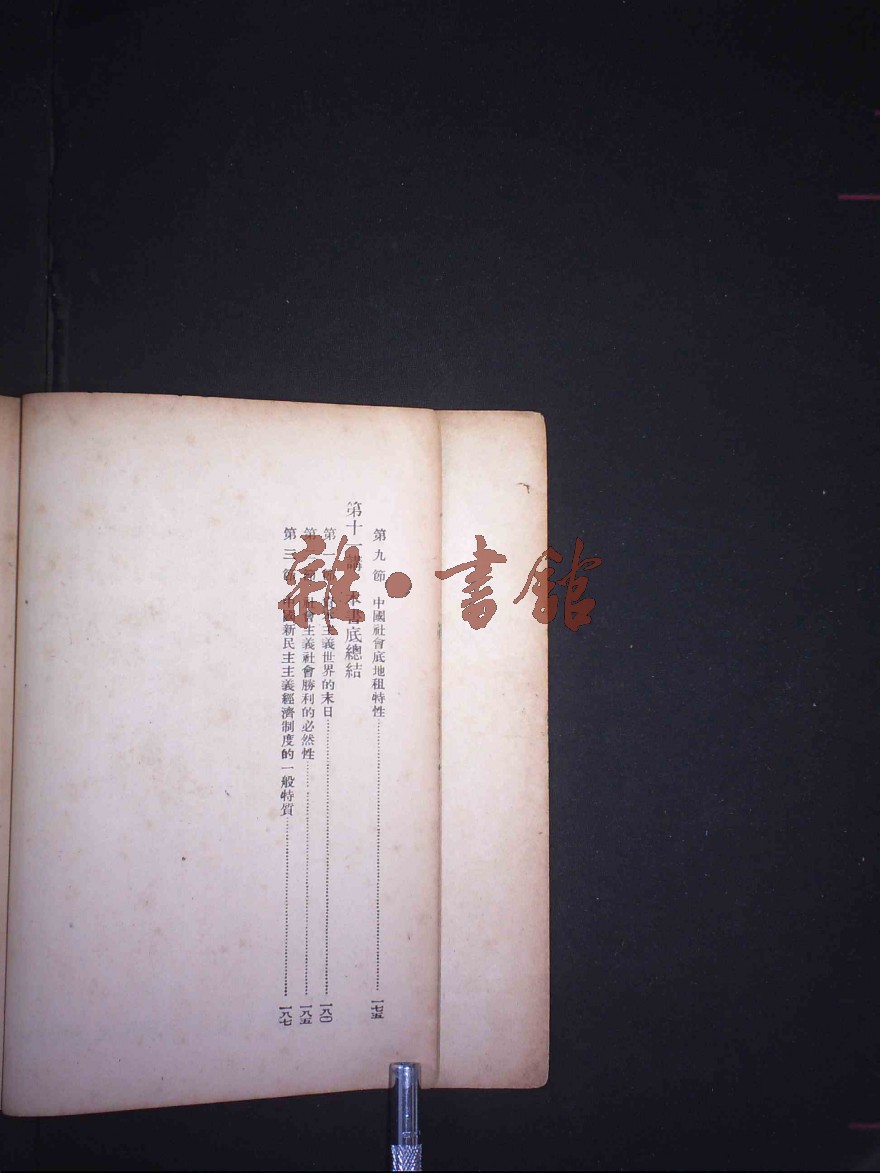 第九節 中國社會底地租特性……一七五
第十一講 本書底總結
第一節 主義世界的末日……一八〇
第 節 社會主義社會勝利的必然性……一八五
第三節 中國新民主主義經濟制度的一般特質……一八七
雜·書館